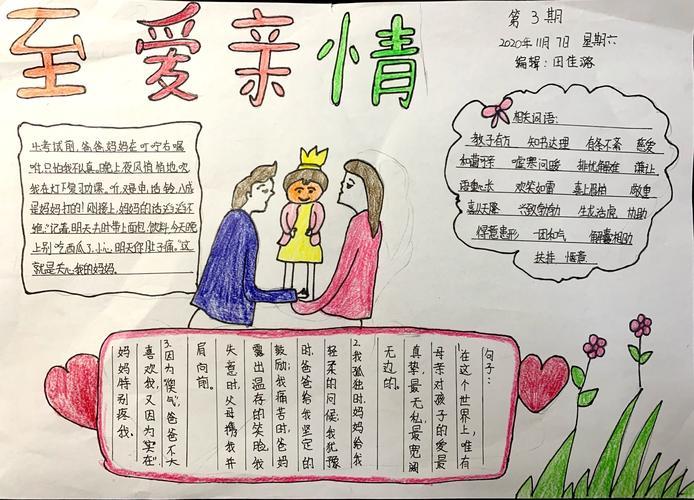 至爱亲情
第3期
2020年11月7日 星期六
编辑：田佳潞
斗考试前,爸爸妈妈在叮咛右嘱
咐,只怕我不认真。晚上,夜风悄悄地吹
我在灯下复习功课。听,又是电话铃,八成
是妈妈打的!刚接上,妈妈的话滔滔不
绝:"记着,明天去时带上面包、饮料,今天晚
上别吃西瓜了,小心,明天你肚子痛。"这
就是关心我的妈妈。
相关词语:
教子有方 知书达理 有条不紊 慈爱
和蔼可亲 嘘寒问暖 排忧解难 谦让
语重心长 欢笑如雷 喜上眉梢 敬重
喜从天降 兴致勃勃 生龙活虎 协助
得意忘形 一团和气 解囊相助
扶持 惬意
句子:
1.在这个世界上,唯有
母亲对孩子的爱是最
真挚、最无私、最宽阔
无边的。
2.我孤独时,妈妈给我
轻柔的问候;我犹豫
时,爸爸给我坚定的
鼓励;我痛苦时,爸妈
露出温存的笑脸;我
失意时,父母携我并
肩向前。
3.因为"傻气",爸爸不大
喜欢我,又因为"实在"
妈妈特别疼我。